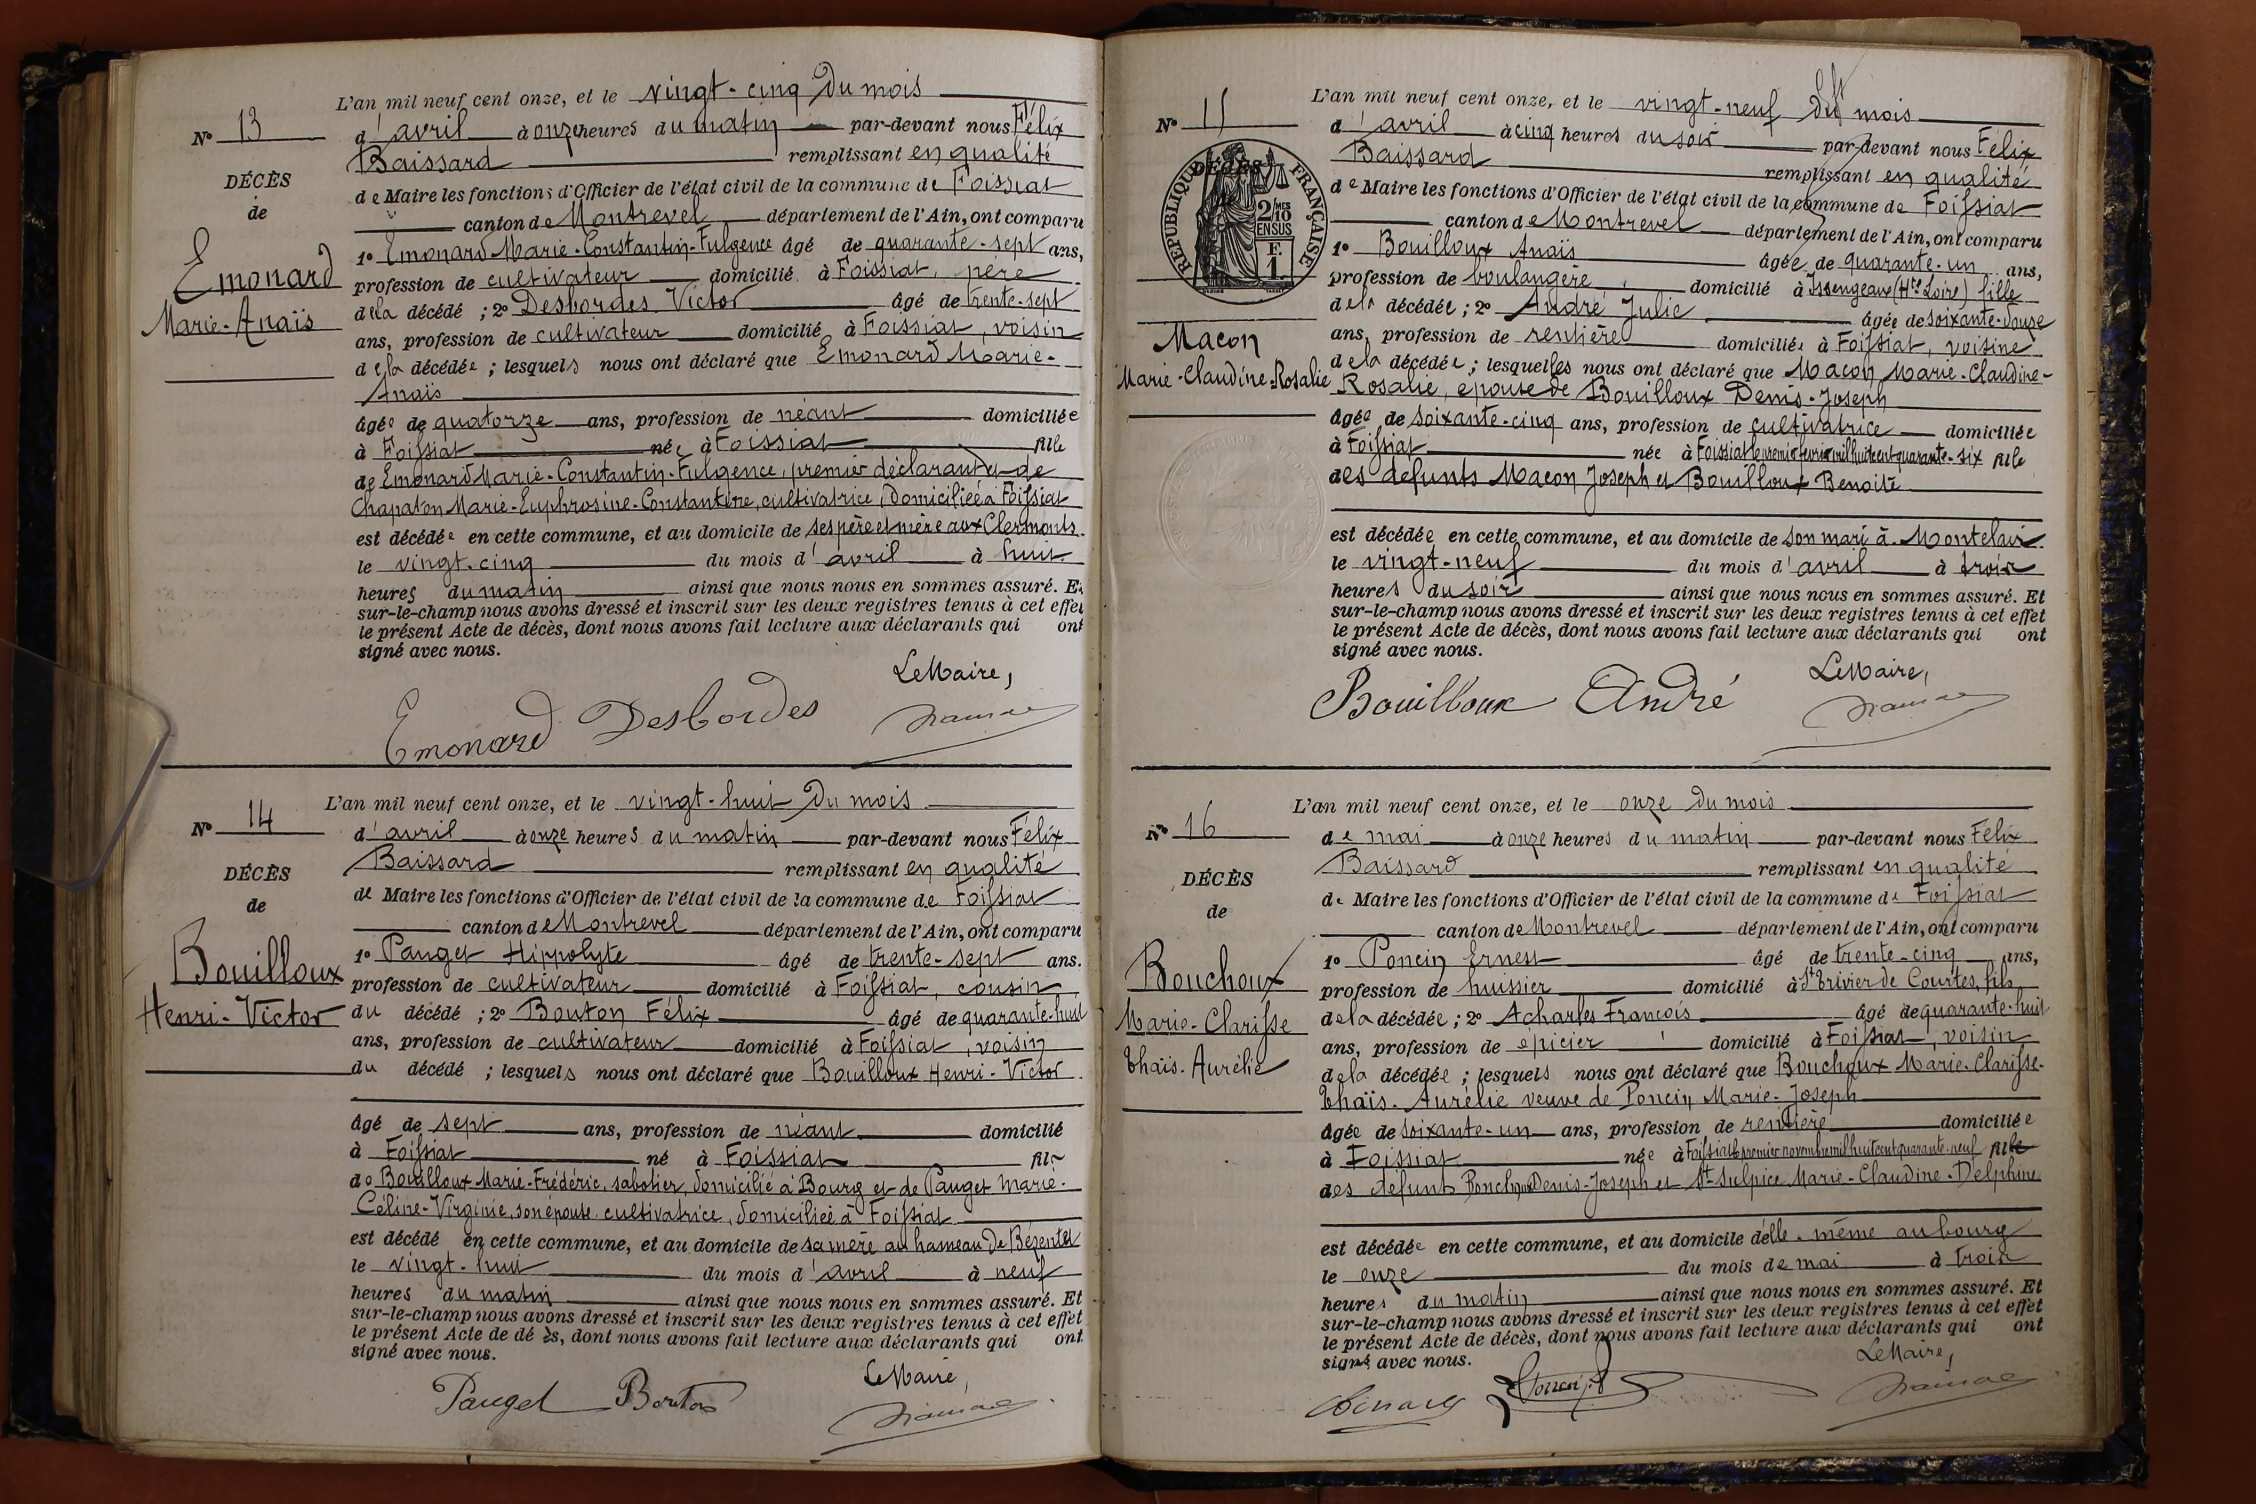 L'an mil neuf cent onze, et le vingt-cinq du mois
N° 13
d'avril à onze heures du matin par-devant nous Félix
Baissard remplissant en qualité
DÉCÈS
de Maire les fonctions d'Officier de l'état civil de la commune de Foissiat
de
canton de Montrevel département de l'Ain, ont comparu
1° Emonard Marie-Constantin-Fulgence âgé de quarante-sept ans,
Emonard
profession de cultivateur domicilié à Foissiat, père
Marie-Anaïs
de la décédé ; 2° Desbordes Victor âgé de trente-sept
ans, profession de cultivateur domicilié à Foissiat, voisin
de la décédée ; lesquels nous ont déclaré que Emonard Marie-
Anaïs
âgée de quatorze ans, profession de néant domiciliée
à Foissiat née à Foissiat fille
de Emonard Marie-Constantin-Fulgence, premier déclarant et de
Chapaton Marie-Euphrosine-Constantine, cultivatrice, domiciliée à Foissiat
est décédée en cette commune, et au domicile de ses père et mère aux Clermonts
le vingt-cinq du mois d'avril à huit
heures du matin ainsi que nous nous en sommes assuré. Et
sur-le-champ nous avons dressé et inscrit sur les deux registres tenus à cet effet
le présent Acte de décès, dont nous avons fait lecture aux déclarants qui ont
signé avec nous.
Le Maire,
Emonard Desbordes
L'an mil neuf cent onze, et le vingt-huit du mois
N° 14
d'avril à onze heures du matin par-devant nous Félix
Baissard remplissant en qualité
DÉCÈS
de Maire les fonctions d'Officier de l'état civil de la commune de Foissiat
de
canton de Montrevel département de l'Ain, ont comparu
1° Pauget Hippolyte âgé de trente-sept ans.
Bouilloux
profession de cultivateur domicilié à Foissiat, cousin
Henri-Victor
du décédé ; 2° Bouton Félix âgé de quarante-huit
ans, profession de cultivateur domicilié à Foissiat, voisin
du décédé ; lesquels nous ont déclaré que Bouilloux Henri-Victor
âgé de sept ans, profession de néant domicilié
à Foissiat né à Foissiat fils
de Bouilloux Marie-Frédéric, sabotier, domicilié à Bourg et de Pauget Marie-
Céline-Virginie, son épouse cultivatrice, domiciliée à Foissiat
est décédé en cette commune, et au domicile de sa mère au hameau de Bézentet
le vingt-huit du mois d'avril à neuf
heures du matin ainsi que nous nous en sommes assuré. Et
sur-le-champ nous avons dressé et inscrit sur les deux registres tenus à cet effet
le présent Acte de dé ès, dont nous avons fait lecture aux déclarants qui ont
signé avec nous.
Le Maire,
Pauget Bouton
L'an mil neuf cent onze, et le vingt-neuf du mois
N° 15
d'avril à cinq heures du soir par-devant nous Félix
Baissard remplissant en qualité
DÉCÈS
RÉPUBLIQUE FRANÇAISE
2/10 MES
EN SUS
F.
1.
de Maire les fonctions d'Officier de l'état civil de la commune de Foissiat
canton de Montrevel département de l'Ain, ont comparu
1° Bouilloux Anaïs âgée de quarante-un ans,
profession de boulangère domicilié à Issengeaux (Hte Loire) fille
de la décédée ; 2° André Julie âgée de soixante-douze
Macon
ans, profession de rentière domiciliée à Foissiat, voisine
Marie-Claudine-Rosalie
de la décédée ; lesquelles nous ont déclaré que Macon Marie-Claudine-
Rosalie, épouse de Bouilloux Denis-Joseph
âgée de soixante-cinq ans, profession de cultivatrice domiciliée
à Foissiat née à Foissiat le premier février mil huit cent quarante-six fille
des défunts Macon Joseph et Bouilloux Benoite
est décédée en cette commune, et au domicile de son mari à Montclair
le vingt-neuf du mois d'avril à trois
heures du soir ainsi que nous nous en sommes assuré. Et
sur-le-champ nous avons dressé et inscrit sur les deux registres tenus à cet effet
le présent Acte de décès, dont nous avons fait lecture aux déclarants qui ont
signé avec nous.
Le Maire,
Bouilloux André
L'an mil neuf cent onze, et le onze du mois
N° 16
de mai à onze heures du matin par-devant nous Félix
Baissard remplissant en qualité
DÉCÈS
de Maire les fonctions d'Officier de l'état civil de la commune de Foissiat
de
canton de Montrevel département de l'Ain, ont comparu
1° Poncin Ernest âgé de trente-cinq ans,
Bouchoux
profession de huissier domicilié à St Trivier de Courtes, fils
Marie-Clarisse
de la décédée ; 2° Acharles François âgé de quarante-huit
ans, profession de épicier domicilié à Foissiat, voisin
Thaïs-Aurélie
de la décédée ; lesquels nous ont déclaré que Bouchoux Marie-Clarisse-
Thaïs-Aurélie veuve de Poncin Marie-Joseph
âgée de soixante-un ans, profession de rentière domiciliée
à Foissiat née à Foissiat le premier novembre mil huit cent quarante-neuf fille
des défunts Bouchoux Denis-Joseph et St-Sulpice Marie-Claudine-Delphine
est décédée en cette commune, et au domicile d'elle-même au bourg
le onze du mois de mai à trois
heures du matin ainsi que nous nous en sommes assuré. Et
sur-le-champ nous avons dressé et inscrit sur les deux registres tenus à cet effet
le présent Acte de décès, dont nous avons fait lecture aux déclarants qui ont
signé avec nous.
Le Maire,